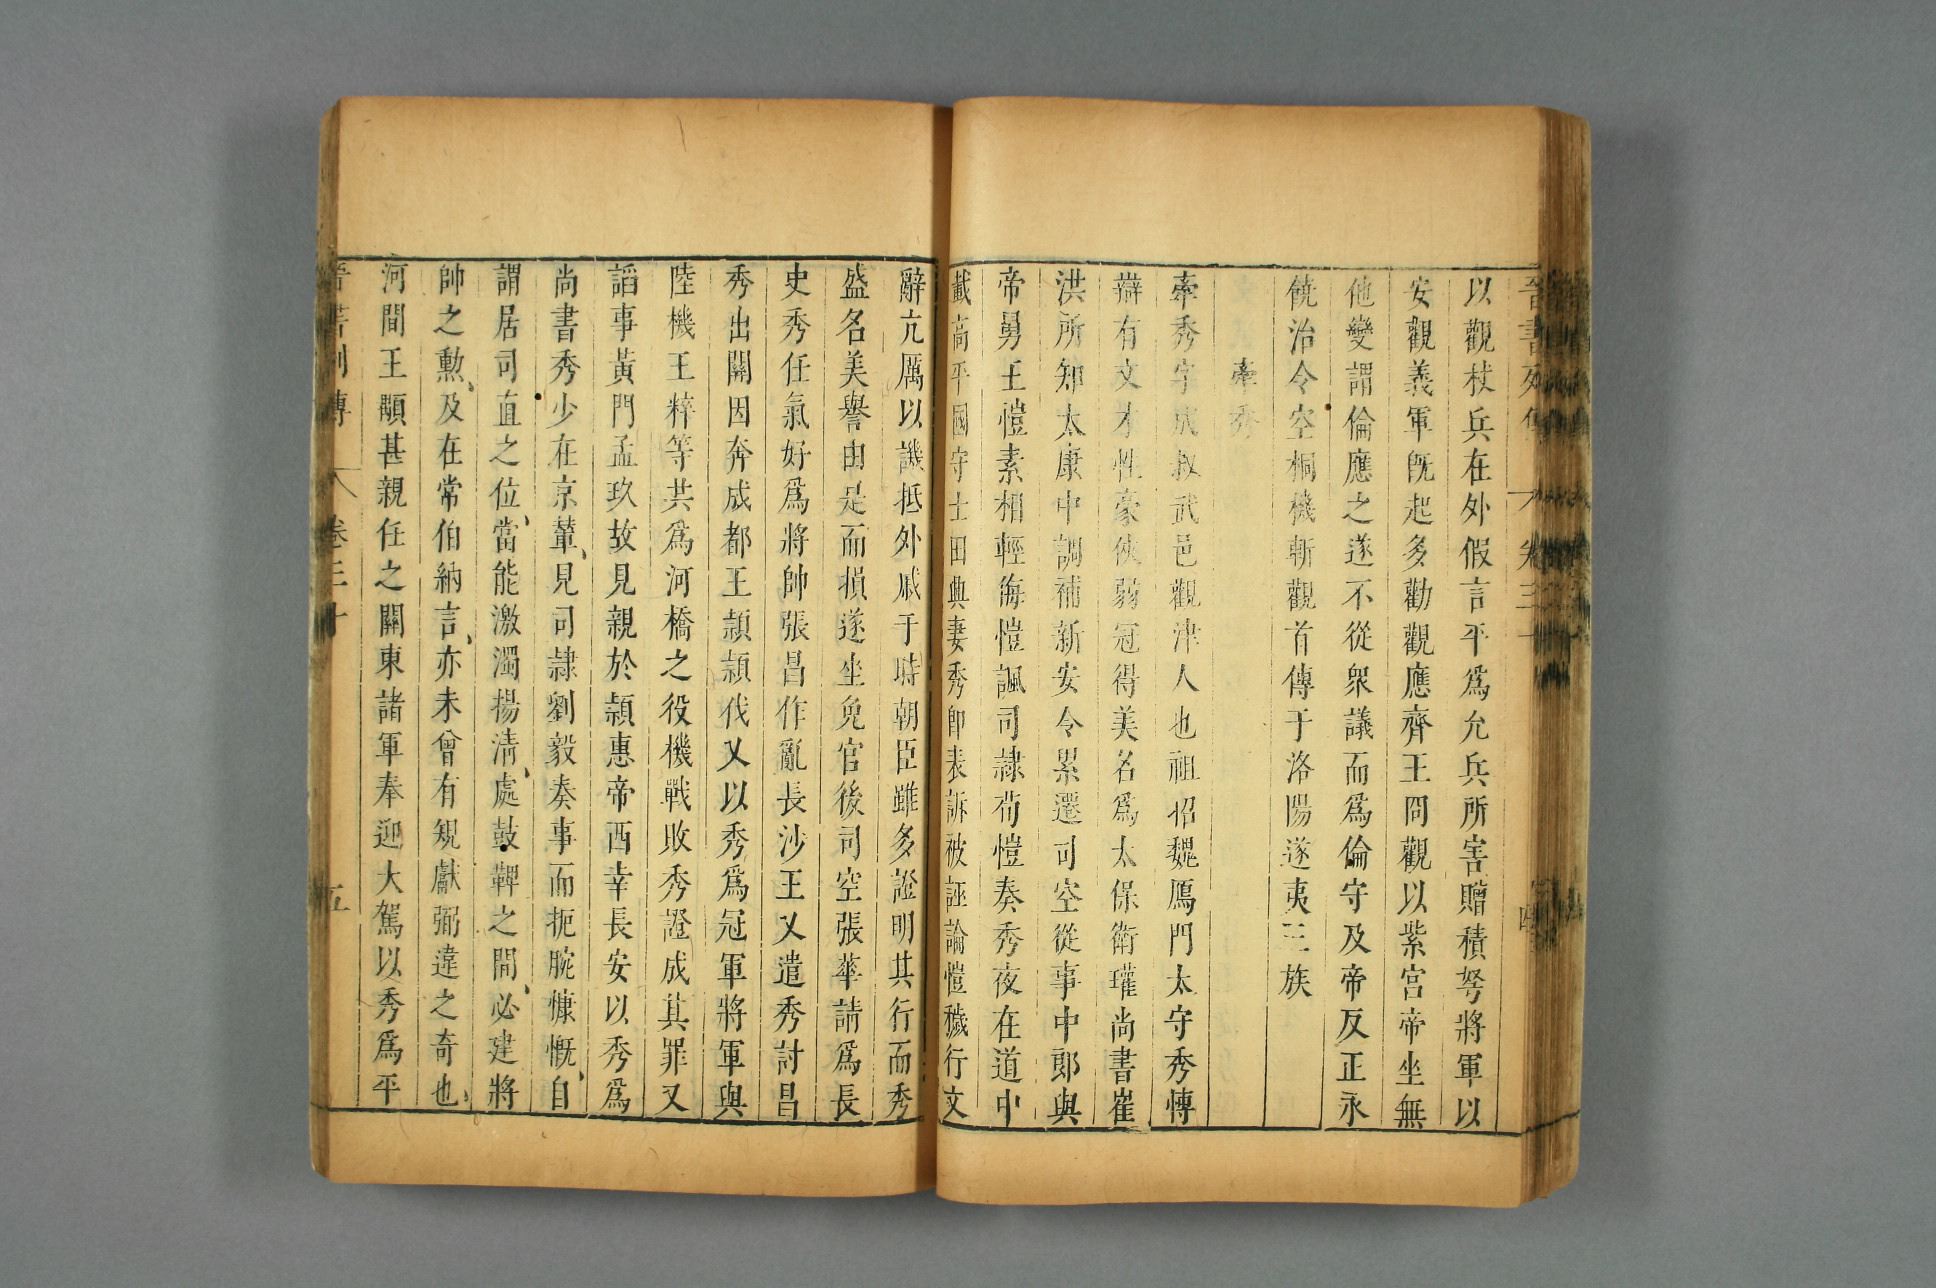 晉書列傳 卷三十 四
以觀杖兵在外假言平爲允兵所害贈積弩將軍以
安觀義軍旣起多勸觀應齊王冏觀以紫宮帝坐無
他變謂倫應之遂不從衆議而爲倫守及帝反正永
饒治令空桐機斬觀首傳于洛陽遂夷三族
牽秀
牽秀字成叔武邑觀津人也祖招魏鴈門太守秀博
辯有文才性豪俠弱冠得美名爲太保衛瓘尚書崔
洪所知太康中調補新安令累遷司空從事中郎與
帝舅王愷素相輕侮愷諷司隸荀愷奏秀夜在道中
載高平國守士田興妻秀卽表訴被誣論愷穢行文
辭亢厲以譏抵外戚于時朝臣雖多證明其行而秀
盛名美譽由是而損遂坐免官後司空張華請爲長
史秀任氣好爲將帥張昌作亂長沙王乂遣秀討昌
秀出關因奔成都王穎穎伐乂以秀爲冠軍將軍與
陸機王粹等共爲河橋之役機戰敗秀證成其罪又
諂事黃門孟玖故見親於穎惠帝西幸長安以秀爲
尚書秀少在京輦、見司隸劉毅奏事而扼腕慷慨、自
謂居司直之位、當能激濁揚清、處鼓鞞之間、必建將
帥之勲、及在常伯納言、亦未曾有規獻弼違之奇也、
河間王顒甚親任之關東諸軍奉迎大駕以秀爲平
晉書列傳 卷三十 五